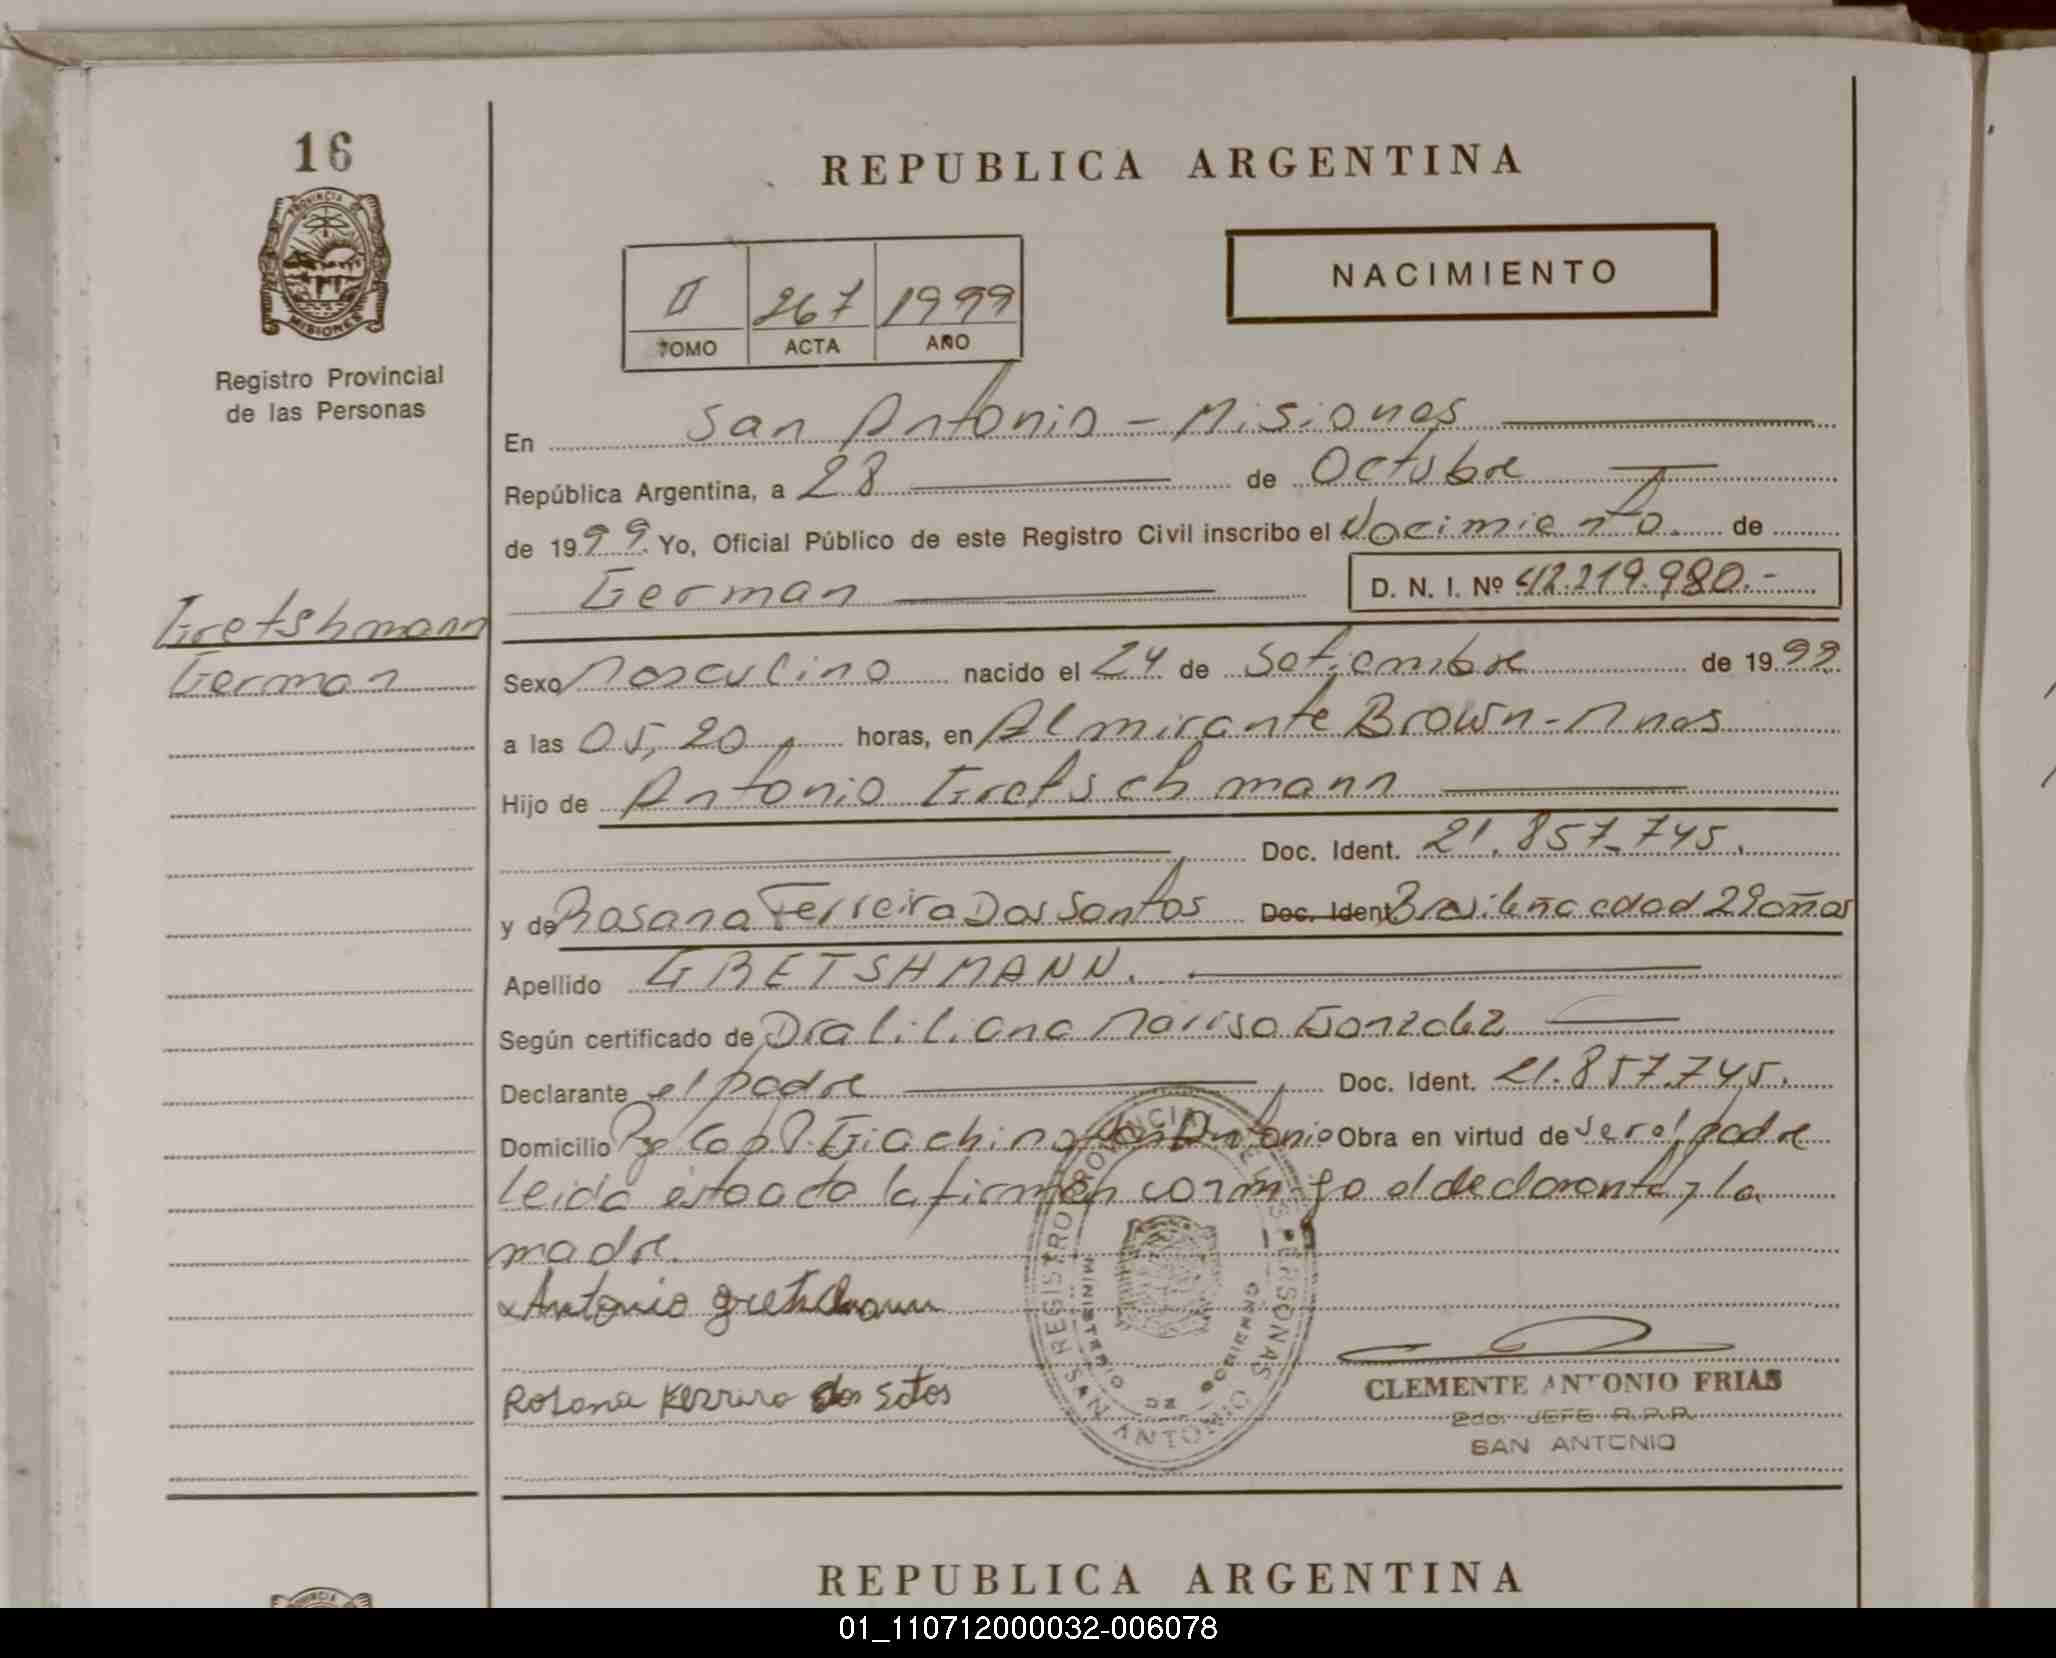 16
PROVINCIA DE
MISIONES
Registro Provincial
de las Personas
Gretshmann
German
REPUBLICA ARGENTINA
NACIMIENTO
II 267 1999
TOMO ACTA AÑO
En San Antonio - Misiones
República Argentina, a 28 de Octubre
de 1999 Yo, Oficial Público de este Registro Civil inscribo el Nacimiento de
German D. N. I. Nº 42.219.980.-
Sexo Masculino nacido el 24 de Setiembre de 1999
a las 05,20 horas, en Almirante Brown - Mnes
Hijo de Antonio Gretschmann
Doc. Ident. 21.857.745.
y de Rosana Ferreira Dos Santos Doc. Ident Brasileña edad 29 años
Apellido GRETSHMANN.
Según certificado de Dra Liliana Marisa Gonzalez
Declarante el padre Doc. Ident. 21.857.745.
Domicilio Pje Cap P. Giachino San Antonio Obra en virtud de ser el padre
Leida esta acta la firman conmigo el declarante y la
madre.
Antonio gretschmann
Rosana Ferrera dos Satos
REGISTRO PROVINCIAL DE LAS PERSONAS
MINISTERIO DE GOBIERNO
SAN ANTONIO
CLEMENTE ANTONIO FRIAS
2do. JEFE R.P.P.
SAN ANTONIO
REPUBLICA ARGENTINA
01_110712000032-006078